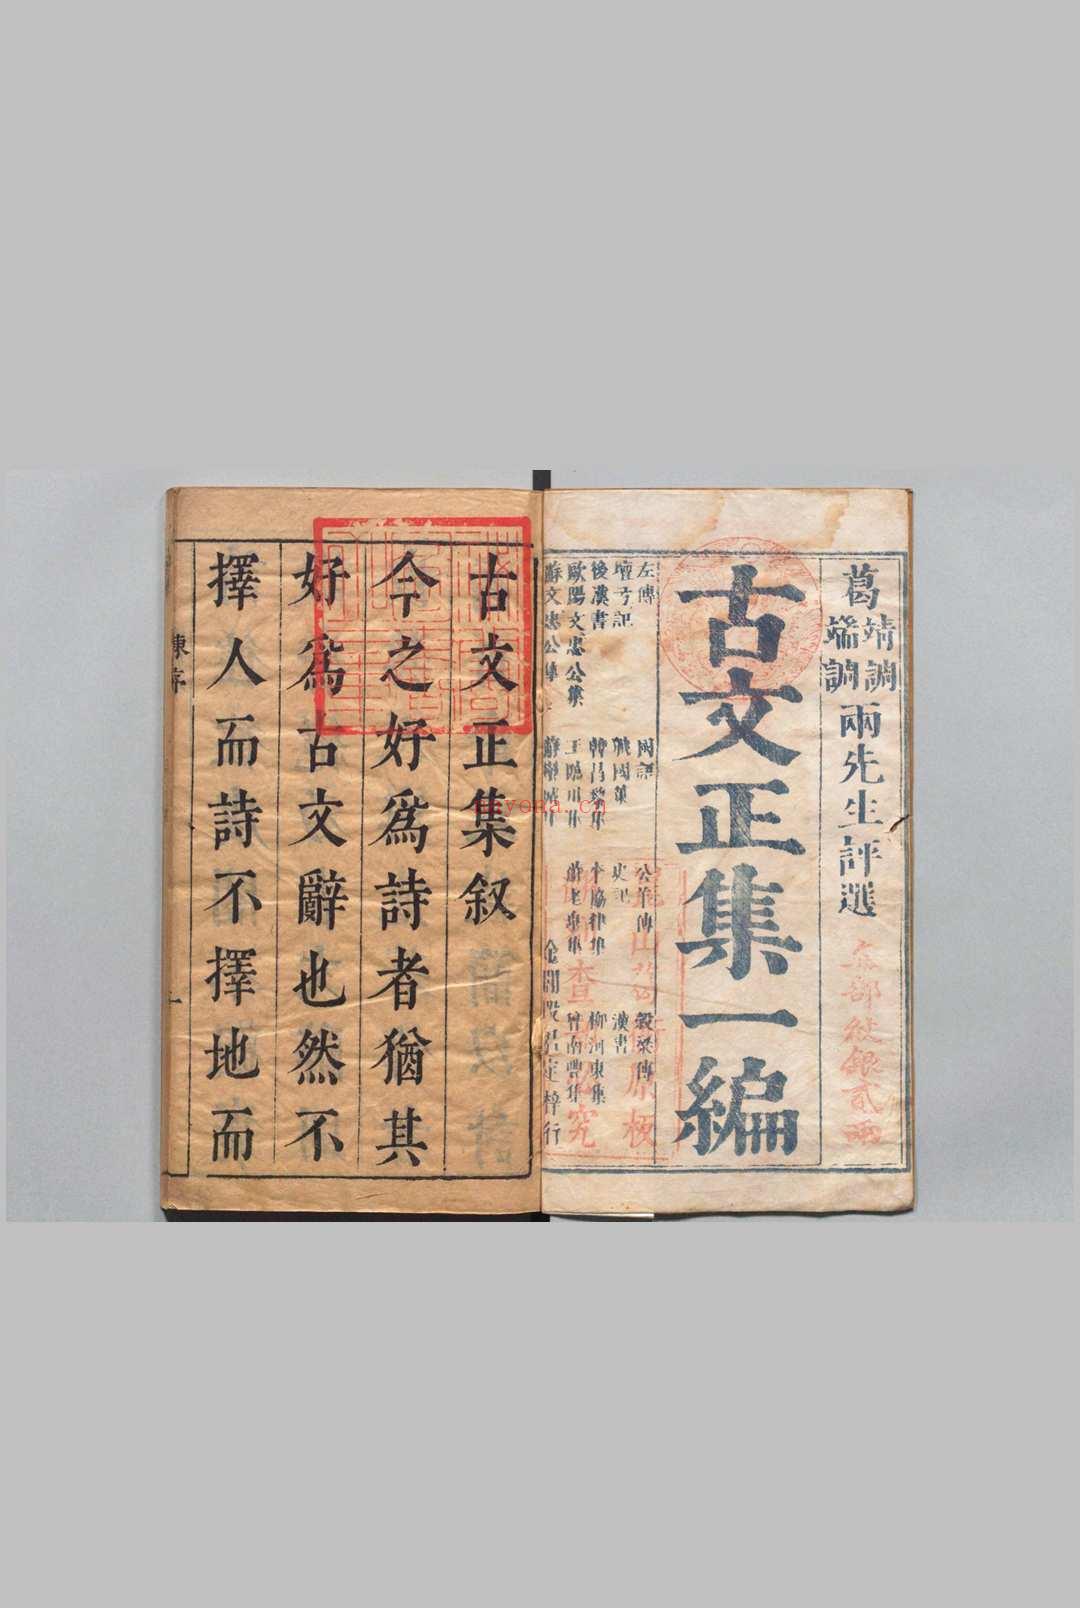 葛靖調端調兩先生評選
每部紋銀貳兩
古文正集一編
左傳 國語 公羊傳 穀梁傳
檀弓記 戰國策 史記 漢書
後漢書 韓昌黎集 柳河東集
歐陽文忠公集 王臨川集 蘇老泉集 曾南豐集
蘇文忠公集 蘇欒城集 金閶段君定梓行
古文正集叙
今之好為詩者猶其
好為古文辭也然不
擇人而詩不擇地而
陳序
一